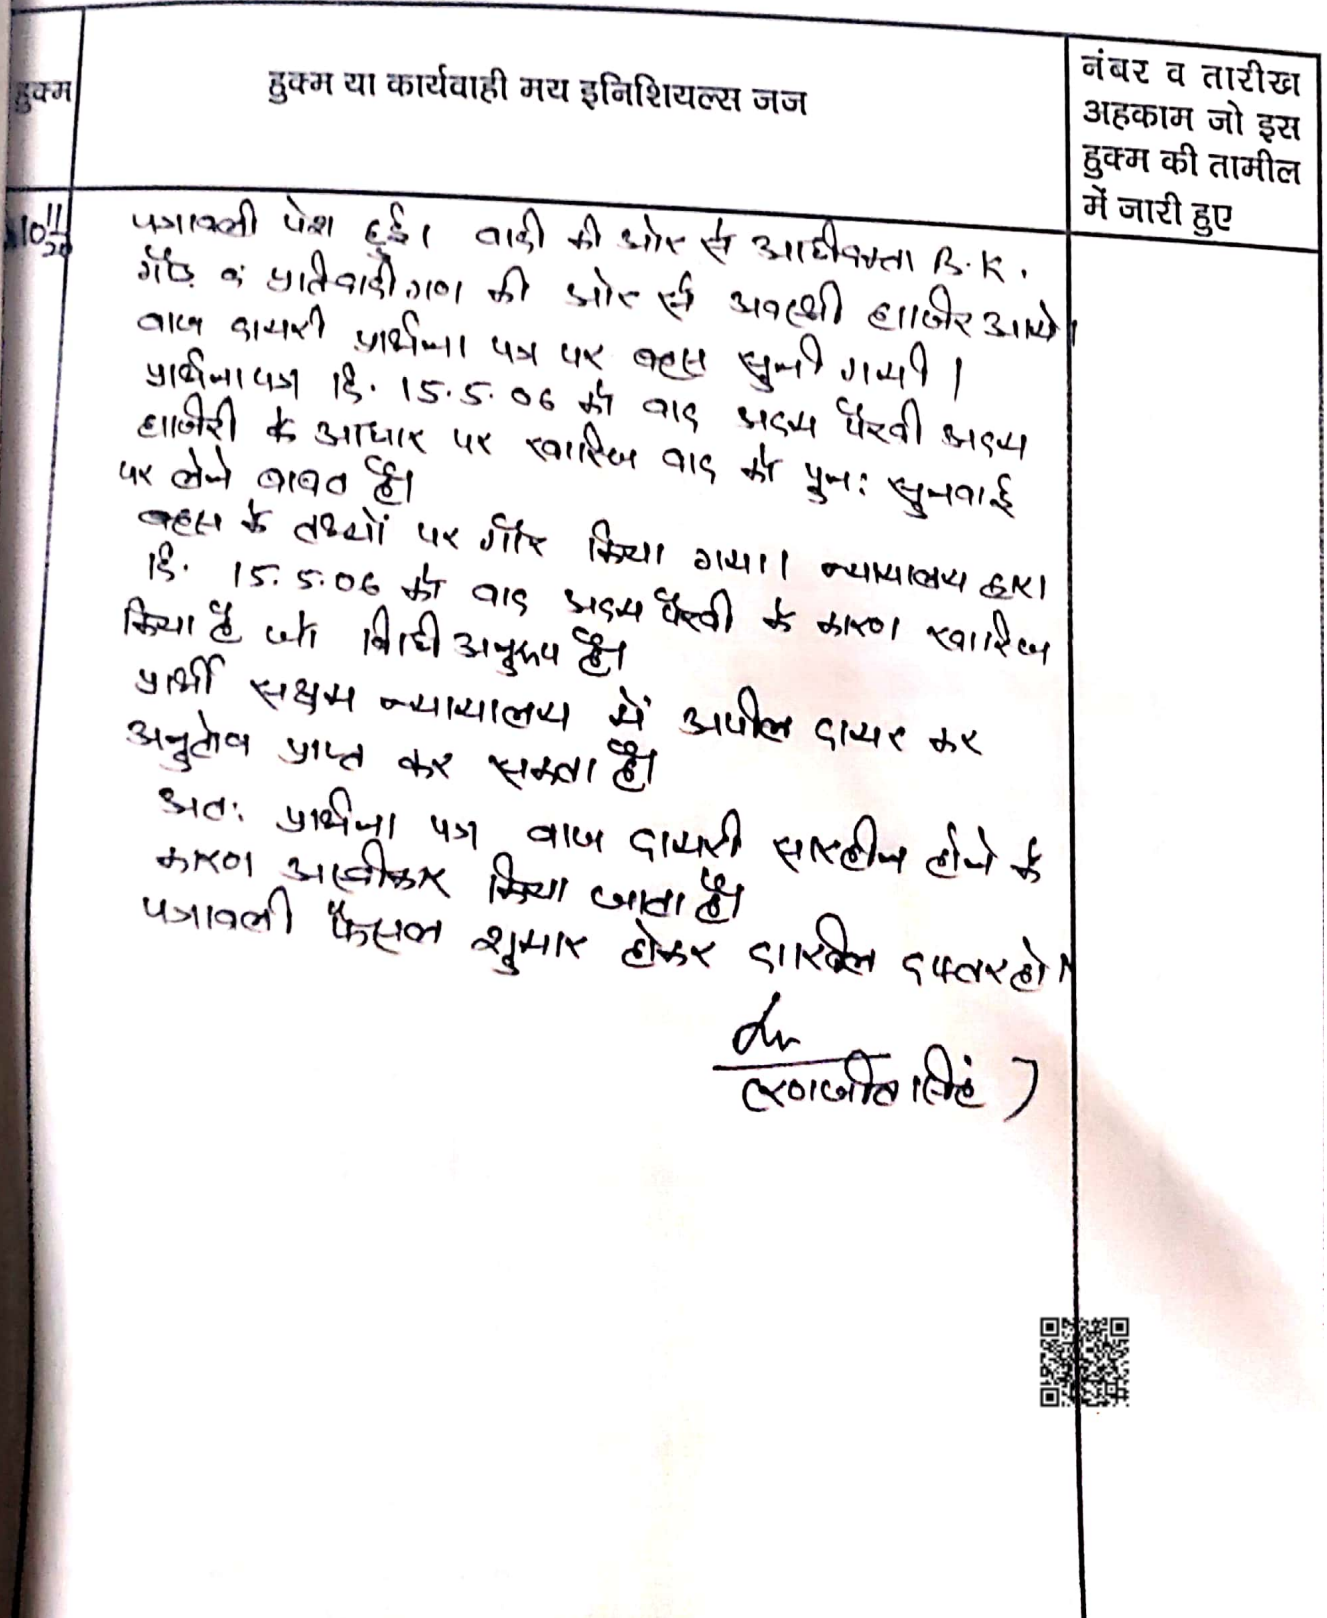 हुक्म
हुक्म या कार्यवाही मय इनिशियल्स जज
नंबर व तारीख
अहकाम जो इस
हुक्म की तामील
में जारी हुए
10 11/20
पत्रावली पेश हुई। वादी की ओर से अधीवक्ता B.K.
गौड़ व प्रतिवादीगण की ओर से अवस्थी हाजिर आये।
बाज दायरी प्रार्थना पत्र पर बहस सुनी गयी।
प्रार्थना पत्र दि. 15.5.06 को वाद अदम पैरवी अदम
हाजिरी के आधार पर खारिज वाद को पुनः सुनवाई
पर लेने बाबत है।
बहस के तथ्यों पर गौर किया गया। न्यायालय द्वारा
दि. 15.5.06 को वाद अदम पैरवी के कारण खारिज
किया है जो विधी अनुरूप है।
प्रार्थी सक्षम न्यायालय में अपील दायर कर
अनुतोष प्राप्त कर सकता है।
अतः प्रार्थना पत्र बाज दायरी सारहीन होने के
कारण अस्वीकार किया जाता है।
पत्रावली फैसल शुमार होकर दाखिल दफ्तर हो।
(रणजीत सिंह)